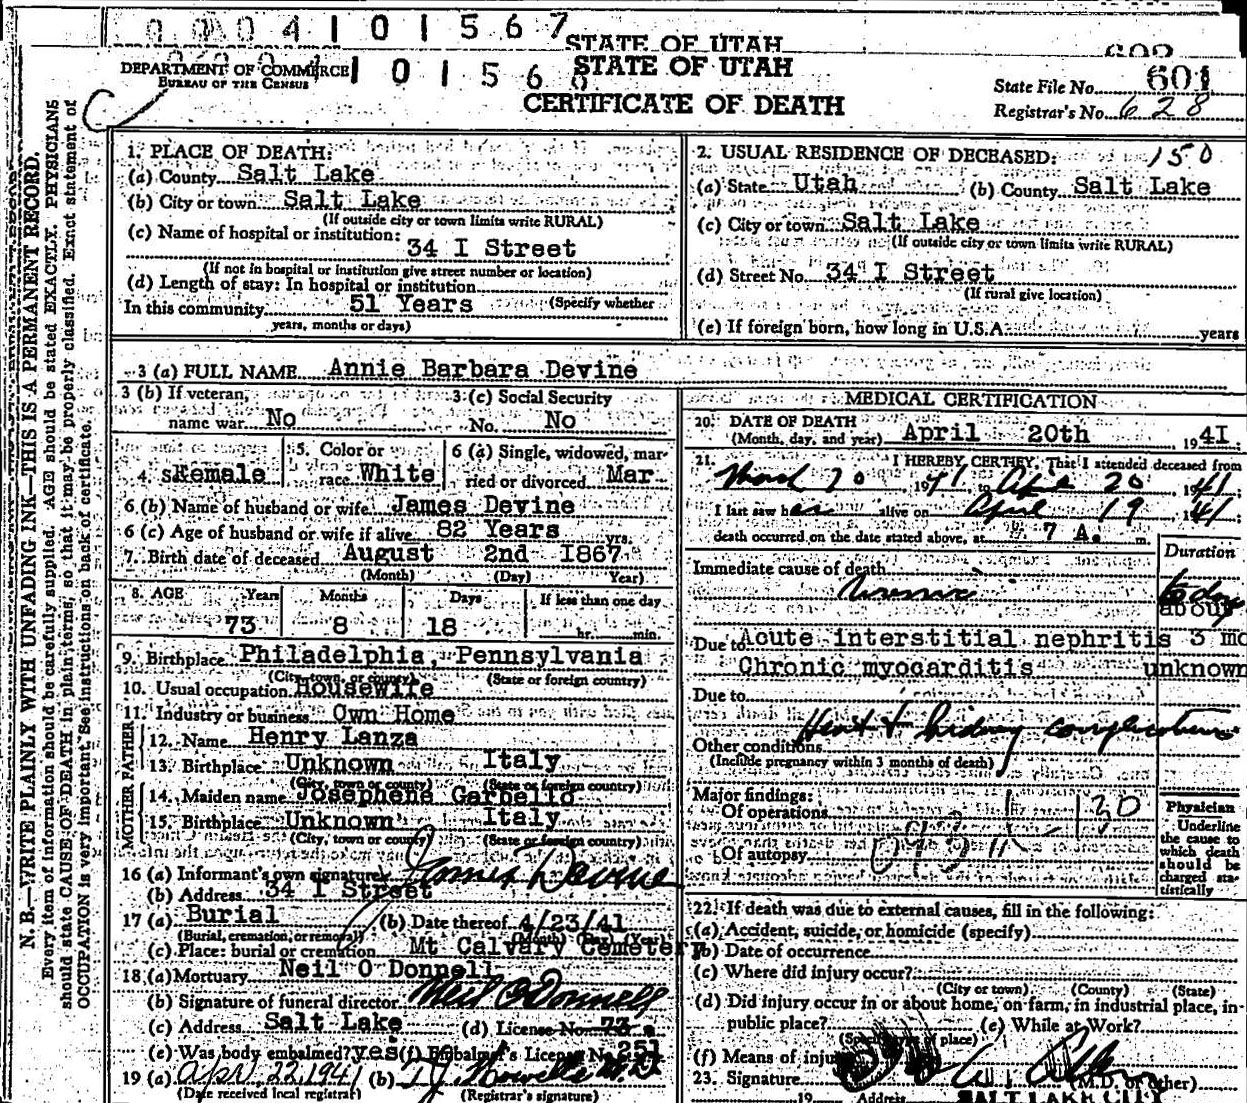 0 0 0 4 1 0 1 5 6 7
STATE OF UTAH
602
DEPARTMENT OF COMMERCE
BUREAU OF THE CENSUS
1 0 1 5 6 6
STATE OF UTAH
CERTIFICATE OF DEATH
State File No. 601
Registrar's No. 628
N. B.—WRITE PLAINLY WITH UNFADING INK—THIS IS A PERMANENT RECORD.
Every item of information should be carefully supplied. AGE should be stated EXACTLY. PHYSICIANS
should state CAUSE OF DEATH in plain terms, so that it may be properly classified. Exact statement of
OCCUPATION is very important. See instructions on back of certificate.
1. PLACE OF DEATH:
(a) County Salt Lake
(b) City or town Salt Lake
(If outside city or town limits write RURAL)
(c) Name of hospital or institution:
34 I Street
(If not in hospital or institution give street number or location)
(d) Length of stay: In hospital or institution
In this community 51 Years (Specify whether
years, months or days)
2. USUAL RESIDENCE OF DECEASED: 150
(a) State Utah (b) County Salt Lake
(c) City or town Salt Lake
(If outside city or town limits write RURAL)
(d) Street No. 34 I Street
(If rural give location)
(e) If foreign born, how long in U.S.A. years
3 (a) FULL NAME Annie Barbara Devine
3 (b) If veteran,
name war No
3 (c) Social Security
No. No
4. Sex Female
5. Color or
race White
6 (a) Single, widowed, mar-
ried or divorced Mar
6 (b) Name of husband or wife James Devine
6 (c) Age of husband or wife if alive 82 Years yrs.
7. Birth date of deceased August 2nd 1867
(Month) (Day) Year)
8. AGE Years Months Days If less than one day
73 8 18 hr. min.
9. Birthplace Philadelphia, Pennsylvania
(City, town, or county) (State or foreign country)
10. Usual occupation Housewife
11. Industry or business Own Home
FATHER
12. Name Henry Lanza
13. Birthplace Unknown Italy
(City, town or county) (State or foreign country)
MOTHER
14. Maiden name Josephene Garbello
15. Birthplace Unknown Italy
(City, town or county) (State or foreign country)
16 (a) Informant's own signature James Devine
(b) Address 34 I Street
17 (a) Burial (b) Date thereof 4/23/41
(Burial, cremation, or removal) (Month) (Day) (Year)
(c) Place: burial or cremation Mt Calvary Cemetery
18 (a) Mortuary Neil O Donnell
(b) Signature of funeral director Neil O'Donnell
(c) Address Salt Lake (d) License No. 73
(e) Was body embalmed? yes (f) Embalmer's License No. 251
19 (a) Apr. 22, 1941 (b)
(Date received local registrar) (Registrar's signature)
MEDICAL CERTIFICATION
20. DATE OF DEATH
(Month, day, and year) April 20th 1941
21. I HEREBY CERTIFY, That I attended deceased from
1941 to Apr 20 1941
I last saw her alive on April 19 1941
death occurred on the date stated above, at 7 A. m.
Duration
Immediate cause of death
Uremia
about
Due to Acute interstitial nephritis 3 mo
Chronic myocarditis unknown
Due to
Heart & kidney complications
Other conditions
(Include pregnancy within 3 months of death)
Major findings:
Of operations
130
Of autopsy
Physician
Underline
the cause to
which death
should be
charged sta-
tistically
22. If death was due to external causes, fill in the following:
(a) Accident, suicide, or homicide (specify)
(b) Date of occurrence
(c) Where did injury occur?
(City or town) (County) (State)
(d) Did injury occur in or about home, on farm, in industrial place, in
public place? (e) While at Work?
(Specify type of place)
(f) Means of injury
23. Signature (M.D. or other)
19 Address SALT LAKE CITY